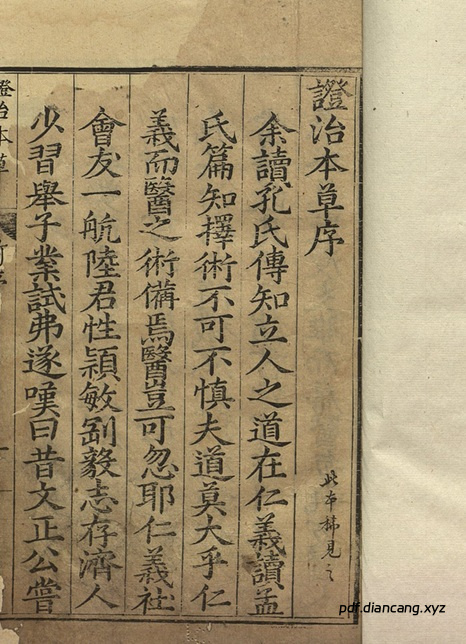 證治本草序
此本稀見之
余讀孔氏傳知立人之道在仁義讀孟
氏篇知擇術不可不慎夫道莫大乎仁
義而醫之術備焉醫豈可忽耶仁義社
會友一航陸君性穎敏剛毅志存濟人
少習舉子業試弗遂嘆曰昔文正公嘗
證治本草
pdf.diancang.xyz